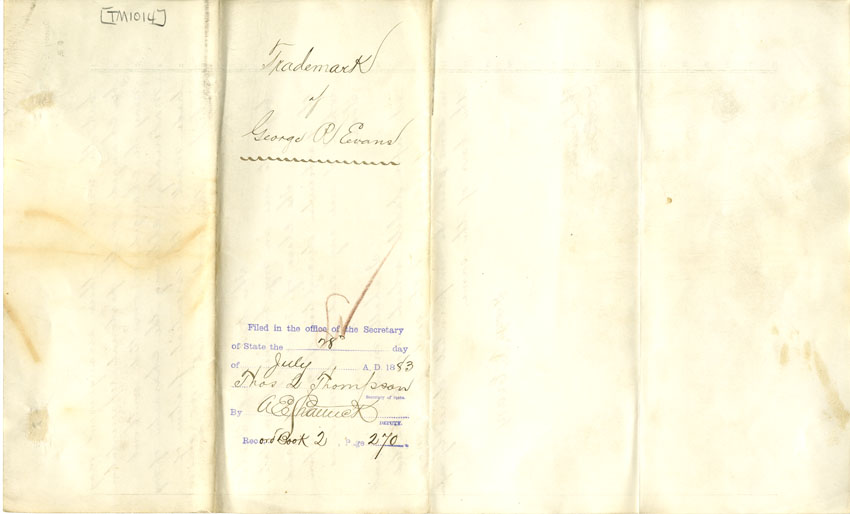 [TM1014]
Trademark
of
George P. Evans
Filed in the office of the Secretary
of State the 28th day
of July A. D. 1883
Thos L Thompson
Secretary of State.
By
DEPUTY.
Record Book 2, Page 270.